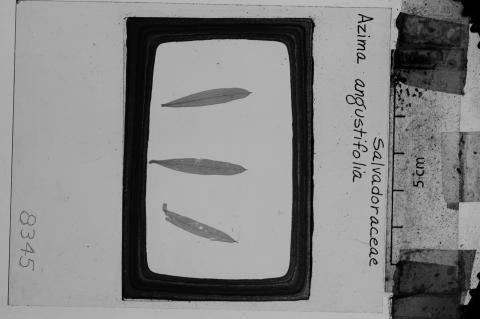 Salvadoraceae
Azima angustifolia
5cm
8345